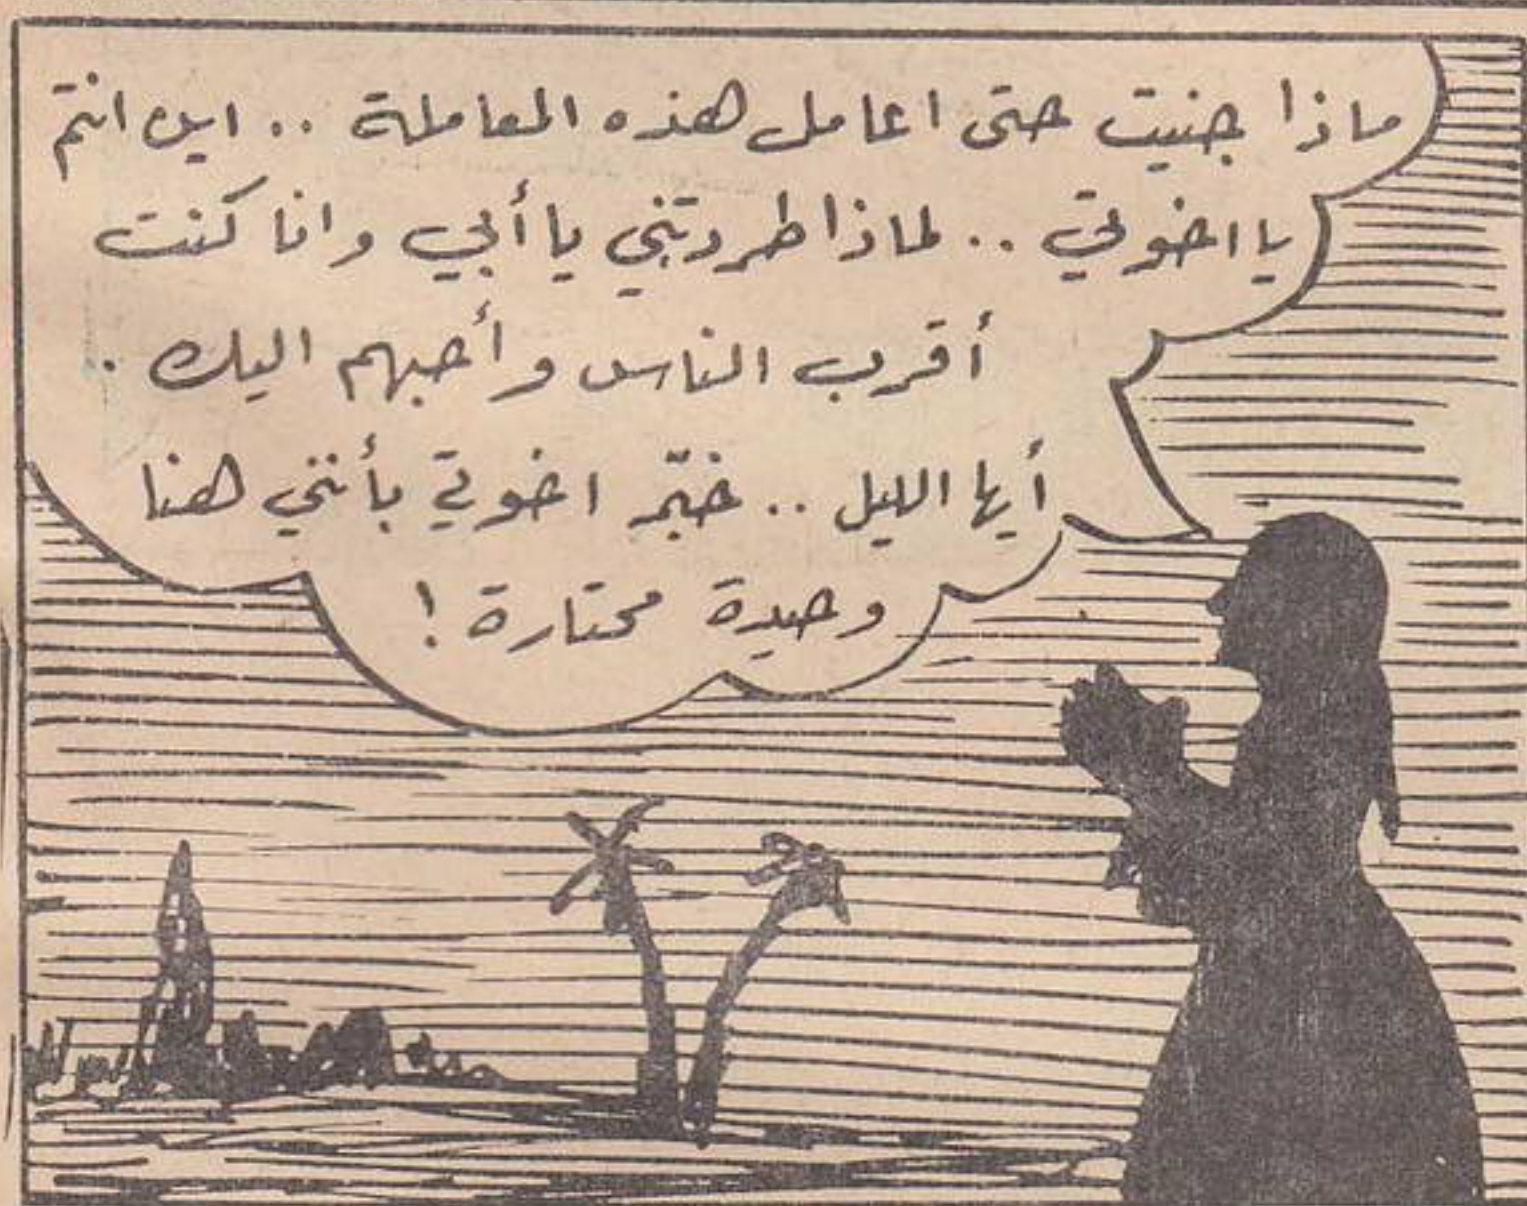 ماذا جنيت حتى اعامل هذه المعاملة .. اين انتم
يا اخوتي .. لماذا طردتني يا أبي وانا كنت
أقرب الناس وأحبهم اليك .
أيها الليل .. خبّر اخوتي بأنني هنا
وحيدة محتارة !